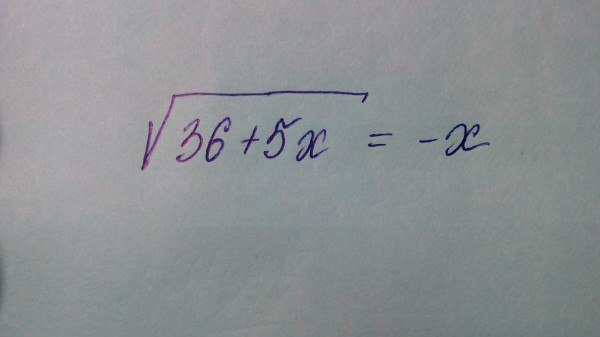 √36+5x = -x